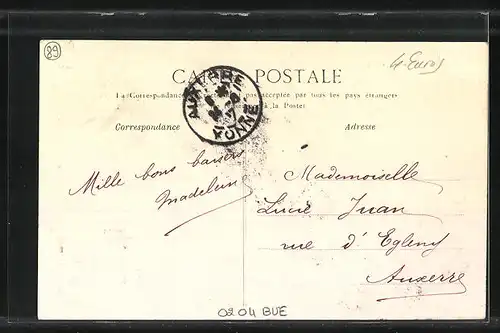 89
4 Euros
CARTE POSTALE
La Correspondance pas acceptée par tous les pays étrangers
à la Poste
Correspondance
Adresse
AUXERRE
YONNE
Mille bons baisers
Madelein
Mademoiselle
Lucie Juan
rue d'Egleny
Auxerre
0204 BUE